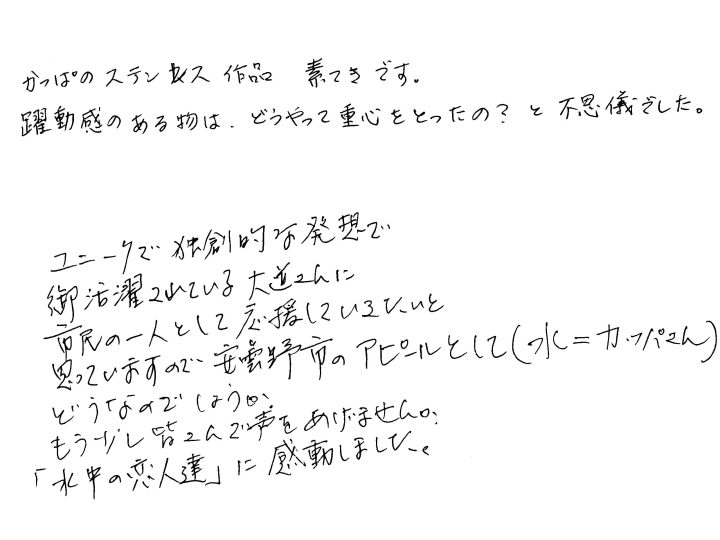 かっぱのステンレス作品 素てきです。
躍動感のある物は、どうやって重心をとったの?と不思儀でした。
ユニークで独創的な発想で
御活濯されている大道さんに
市民の一人として応援していきたいと
思っていますので安曇野市のアピールとして(水=カッパさん)
どうなのでしょうか。
もう少し皆さんで声をあげませんか。
「水中の恋人達」に感動しました。